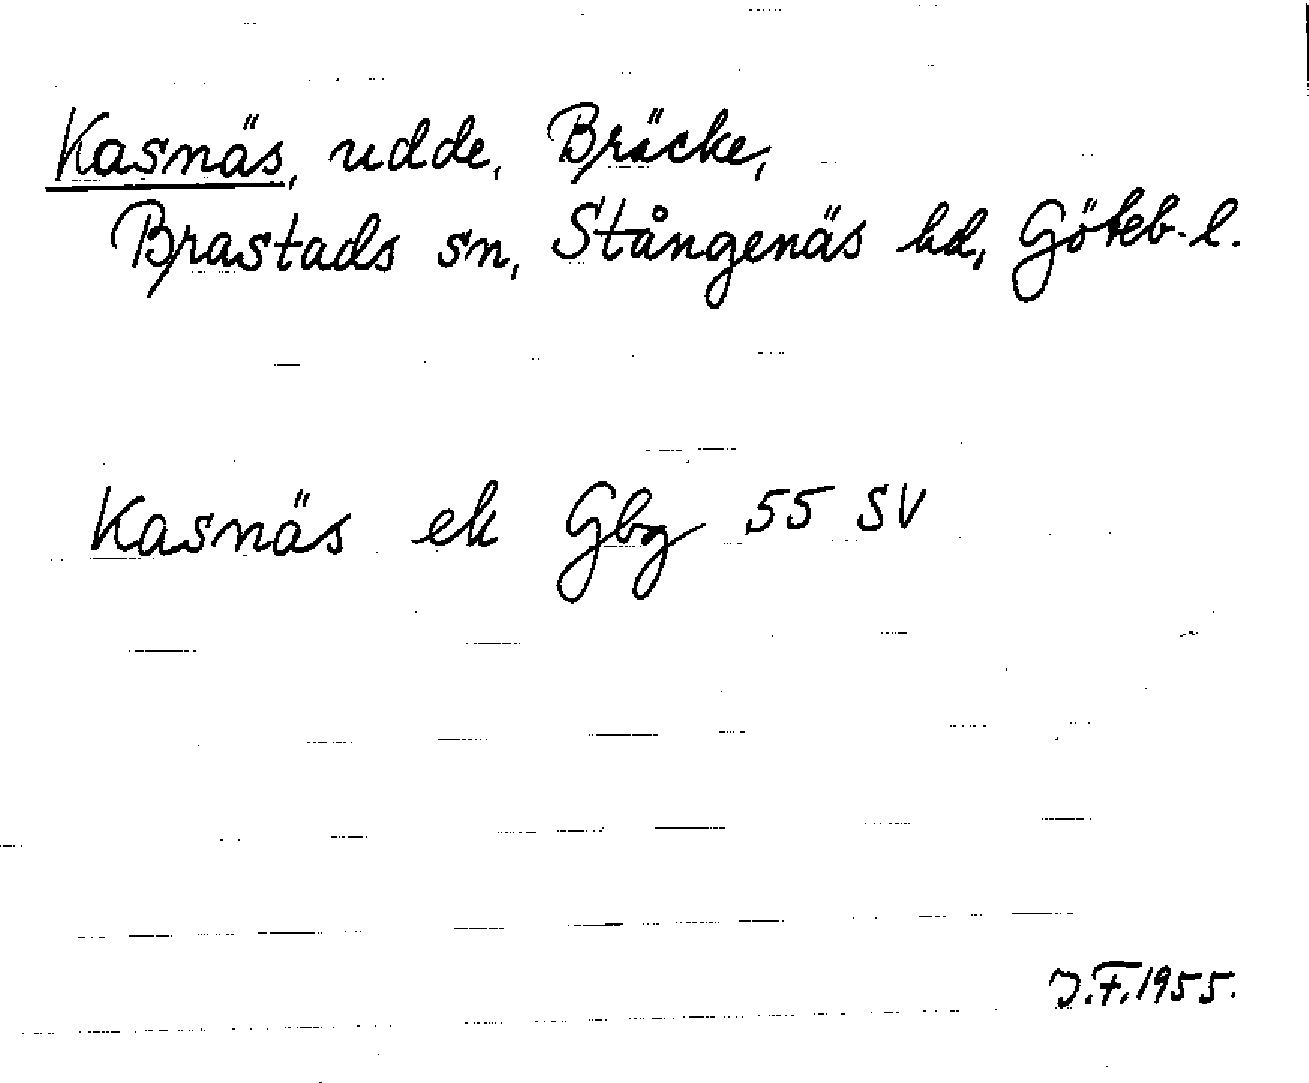 Kasnäs, udde, Bräcke,
Brastads sn, Stångenäs hd, Göteb. l.
Kasnäs ek Gbg 55 SV
J.F. 1955.